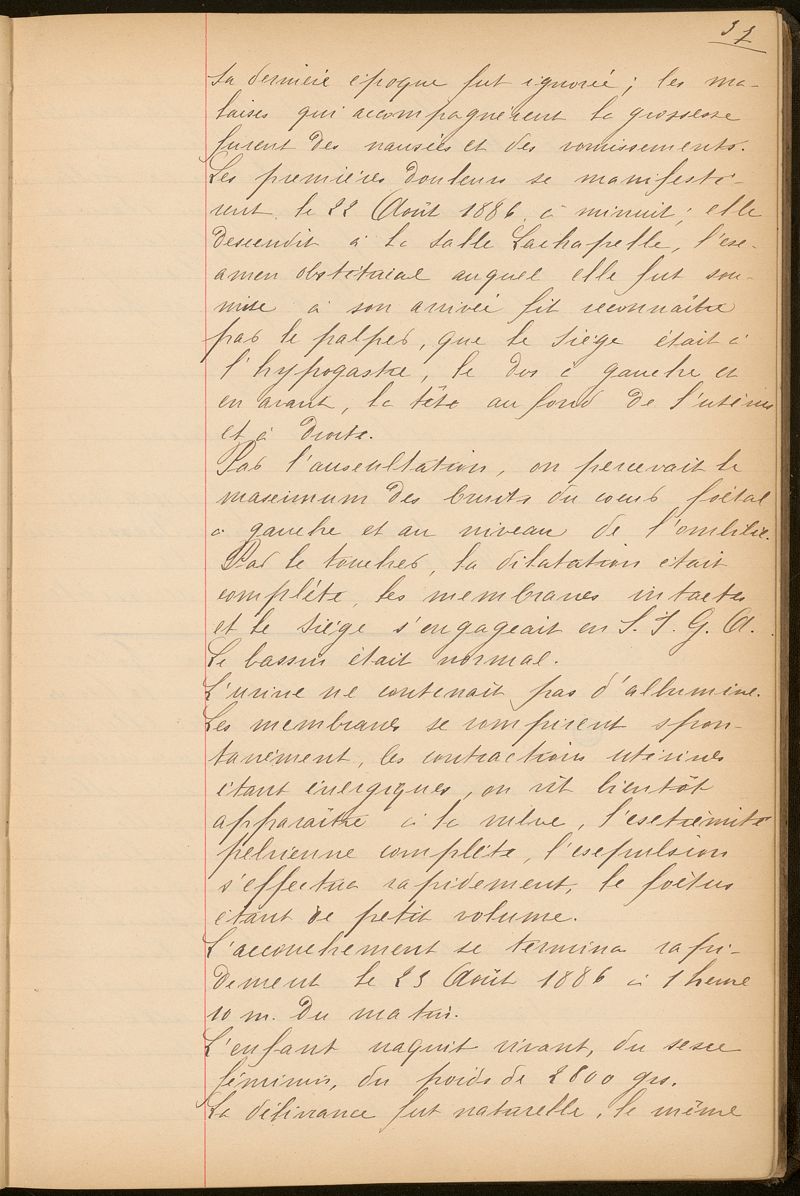 37
sa dernière époque fut ignorée ; les ma-
laises qui accompagnèrent la grossesse
furent des nausées et des vomissements.
Les premières douleurs se manifestè-
rent, le 22 Août 1886, à minuit ; elle
descendit à la salle Lachapelle, l'ex-
amen obstétrical auquel elle fut sou-
mise à son arrivée fit reconnaître
par le palper, que le siège était à
l'hypogastre, le dos à gauche et
en avant, la tête au fond de l'utérus
et à droite.
Par l'auscultation, on percevait le
maximum des bruits du cœur foetal
à gauche et au niveau de l'ombilic.
Par le toucher, la dilatation était
complète, les membranes intactes
et le siège s'engageait en S. I. G. A.
Le bassin était normal.
L'urine ne contenait pas d'albumine.
Les membranes se rompirent spon-
tanément, les contractions utérines
étant énergiques, on vit bientôt
apparaître à la vulve, l'extrémité
pelvienne complète, l'expulsion
s'effectua rapidement, le foetus
étant de petit volume.
L'accouchement se termina rapi-
dement le 23 Août 1886 à 1 heure
10 m. du matin.
L'enfant naquit vivant, du sexe
féminin, du poids de 2800 grs.
La délivrance fut naturelle, le même